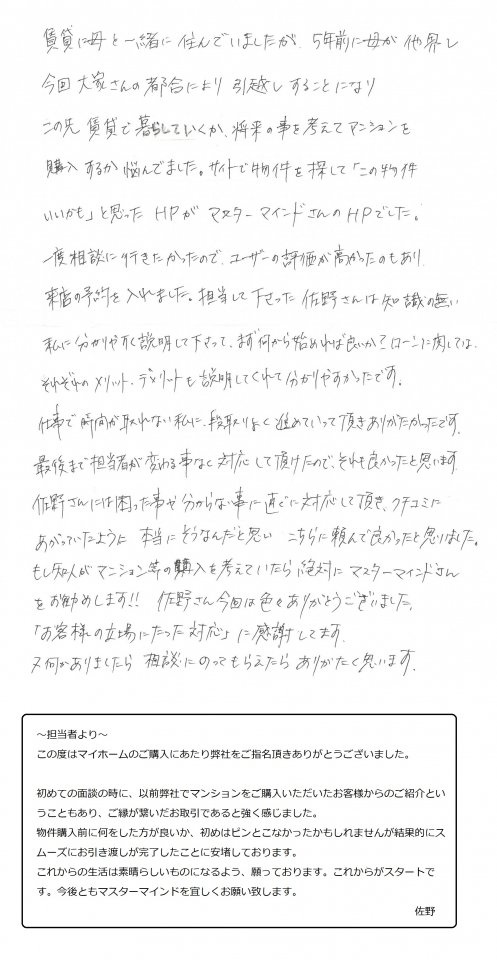 賃貸に母と一緒に住んでいましたが、5年前に母が他界し
今回大家さんの都合により引越しすることになり
この先賃貸で暮らしていくか、将来の事を考えてマンションを
購入するか悩んでました。サイトで物件を探して「この物件
いいかも」と思ったHPがマスターマインドさんのHPでした。
一度相談に行きたかったので、ユーザーの評価が高かったのもあり
来店の予約を入れました。担当して下さった佐野さんは知識の無い
私に分かりやすく説明して下さって、まず何から始めれば良いか?ローンに関しては、
それぞれのメリット・デメリットも説明してくれて分かりやすかったです。
仕事で時間が取れない私に、段取りよく進めていって頂きありがたかったです。
最後まで担当者が変わる事なく対応して頂けたので、それも良かったと思います。
佐野さんには困った事や分からない事に直ぐに対応して頂き、クチコミに
あがっていたように本当にそうなんだと思い こちらに頼んで良かったと思いました。
もし知人がマンション等の購入を考えていたら絶対にマスターマインドさん
をお勧めします!! 佐野さん今回は色々ありがとうございました。
「お客様の立場にたった対応」に感謝してます。
又何かありましたら相談にのってもらえたらありがたく思います。
~担当者より~
この度はマイホームのご購入にあたり弊社をご指名頂きありがとうございました。
初めての面談の時に、以前弊社でマンションをご購入いただいたお客様からのご紹介とい
うこともあり、ご縁が繋いだお取引であると強く感じました。
物件購入前に何をした方が良いか、初めはピンとこなかったかもしれませんが結果的にス
ムーズにお引き渡しが完了したことに安堵しております。
これからの生活は素晴らしいものになるよう、願っております。これからがスタートで
す。今後ともマスターマインドを宜しくお願い致します。
佐野